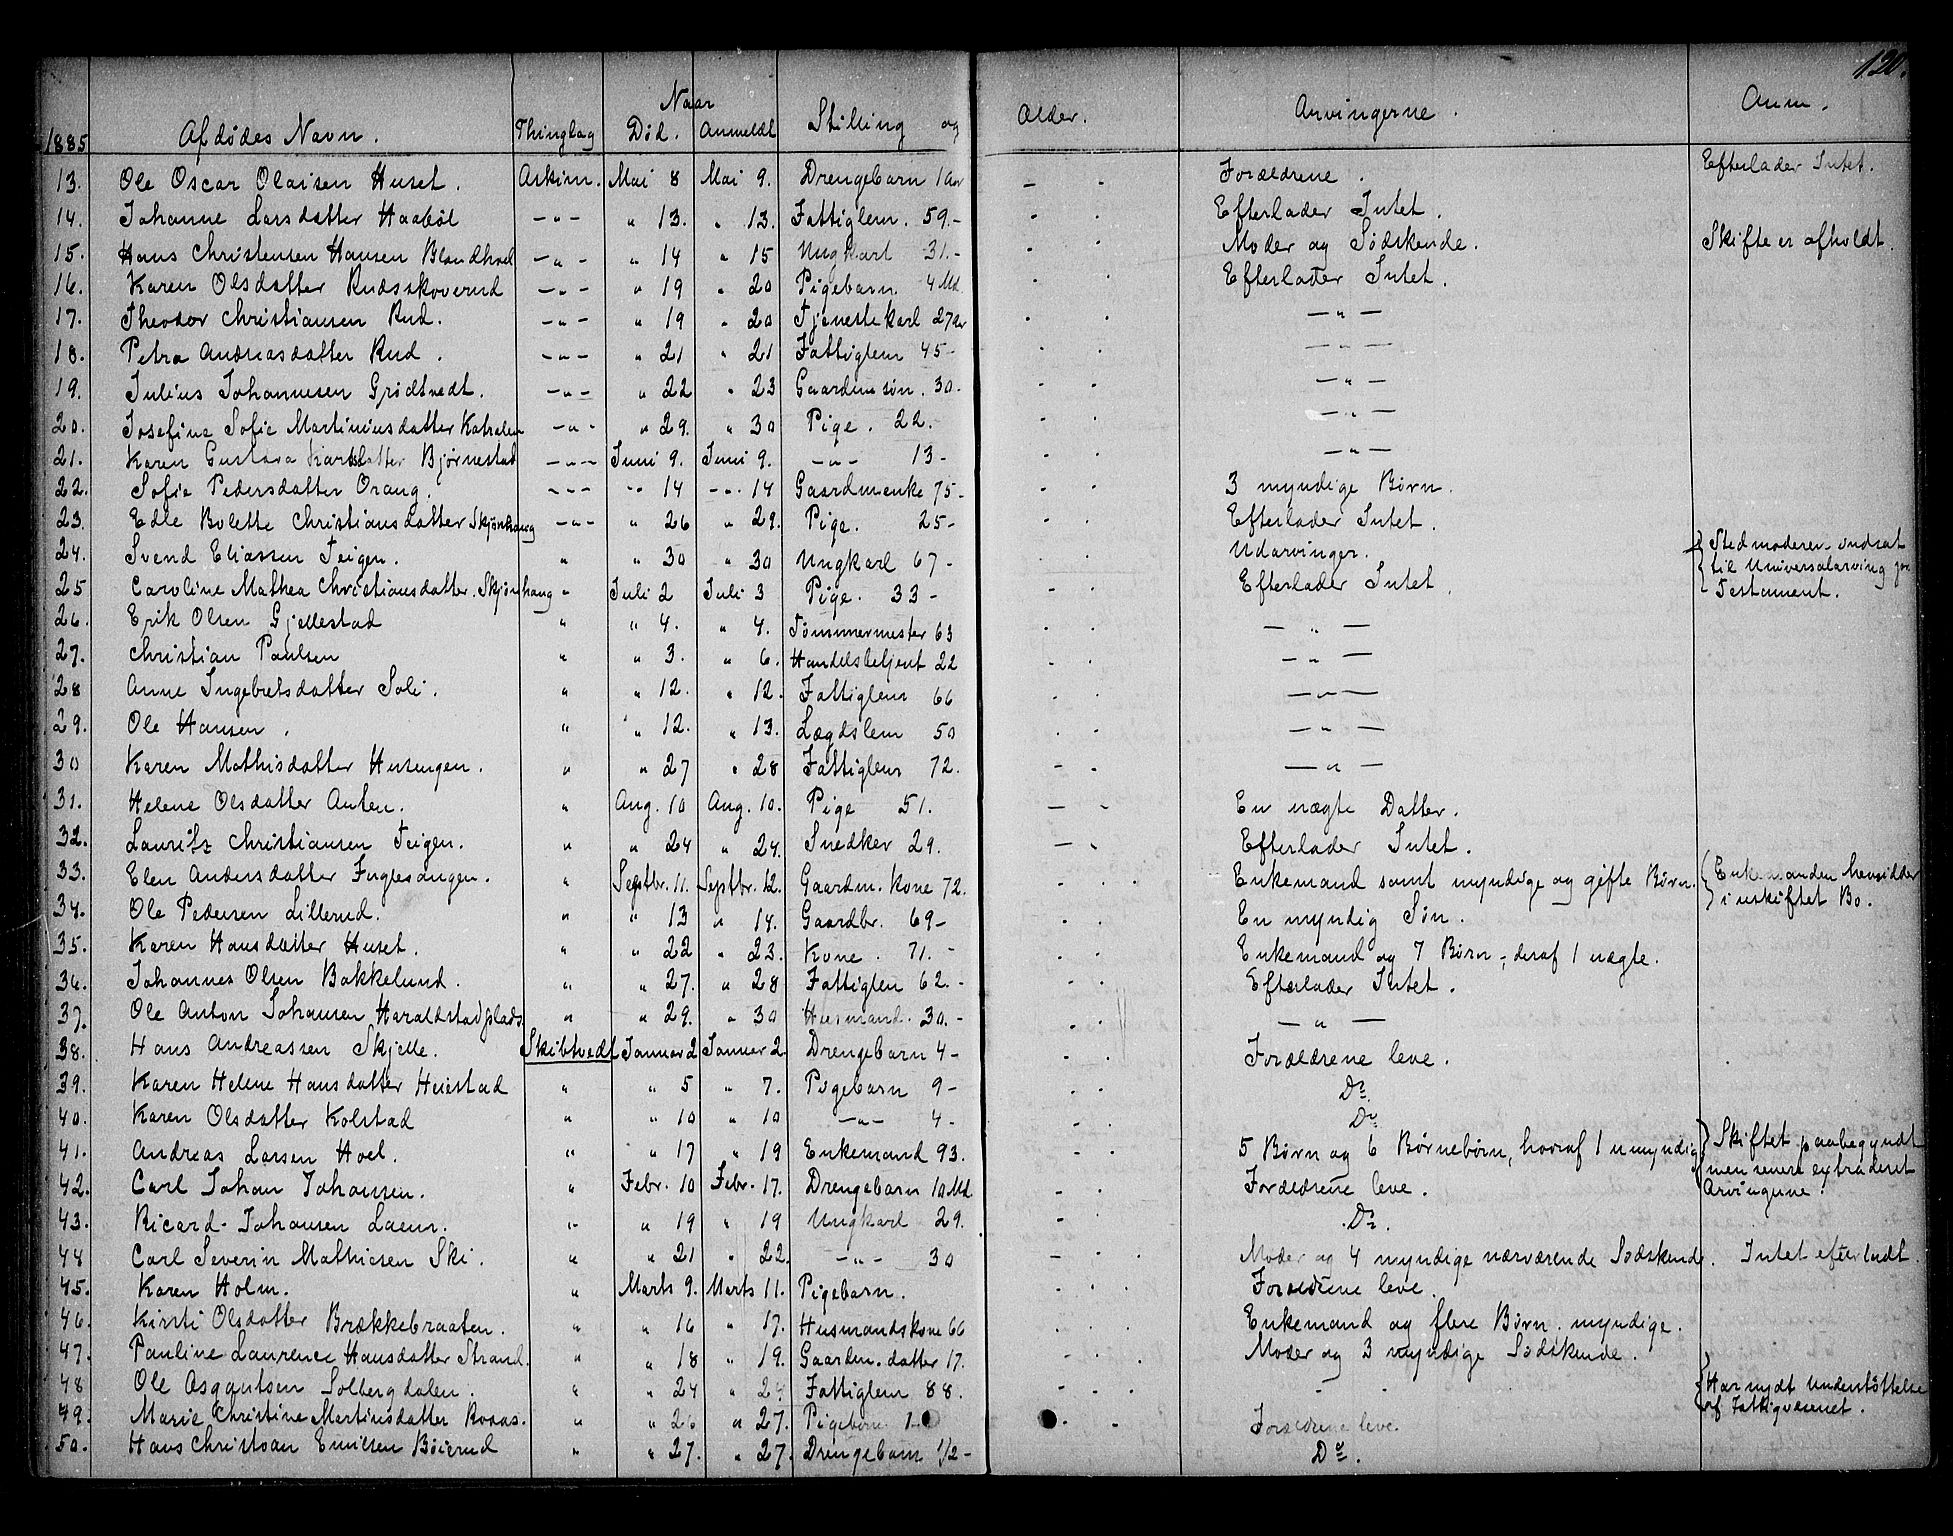 120.
1885 Afdødes Navn. Thinglag Naar Død. Anmeldt Stilling og Alder. Arvingerne. Anm.
13. Ole Oscar Olaisen Huset. Askim. Mai 8 Mai 9. Drengebarn 1 Aar Forældrene. Efterlader Intet.
14. Johanne Larsdatter Haabøl —"— " 13. " 13. Fattiglem. 59.- Efterlader Intet.
15. Hans Christensen Hansen —"— " 14 " 15 Ungkarl 31.- Moder og Sødskende. Skifte er afholdt.
16. Karen Olsdatter Rudsskoverud —"— " 19 " 20 Pigebarn 4 Md. Efterlader Intet.
17. Theodor Christiansen Rud. —"— " 19 " 20 Tjenestekarl 27 Aar —"—
18. Petra Andreasdatter Rud. —"— " 21 " 21 Fattiglem 45- —"—
19. Julius Johannesen Grødtvedt. —"— " 22 " 23 Gaardmsøn. 30.- —"—
20. Josefine Sofie Martiniusdatter —"— " 29. " 30 Pige. 22.- —"—
21. Karen Gustava Karlsdatter Bjørnestad —"— Juni 9. Juni 9. —"— 13- —"—
22. Sofie Pedersdatter Oraug. —"— " 14 " 14 Gaardmenke 75- 3 myndige Børn.
23. Edle Bolette Christiansdatter Skjønhaug —"— " 26 " 29. Pige. 25- Efterlader Intet.
24. Svend Eliassen Teigen. " " 30 " 30 Ungkarl 67- Udarvinger. { Stedmoderen indsat til Universalarving Testament.
25 Caroline Mathea Christiansdatter. Skjønhaug " Juli 2 Juli 3 Pige. 33- Efterlader Intet
26. Erik Olsen Gjellestad " " 4. " 4. Tømmermester 63 —"—
27. Christian Paulsen " " 3. " 6. Handelsbetjent 22 —"—
28 Anne Ingebretsdatter Soli. " " 12. " 12. Fattiglem 66 —"—
29. Ole Hansen. " " 12. " 13. Lægdslem 50 —"—
30 Karen Mathisdatter Husengen. " " 27 " 28 Fattiglem 72. —"—
31. Helene Olsdatter Auten. " Aug. 10 Aug. 10. Pige 51. En uægte Datter.
32. Lauritz Christiansen Teigen. " " 24 " 24. Snedker 29. Efterlader Intet.
33. Elen Andersdatter Fuglesangen. " Septbr. 11. Septbr. 12. Gaardm. kone 72. Enkemand samt myndige og gifte Børn. { Enkemanden hensidder i uskiftet Bo.
34. Ole Pedersen Lillerud. " " 13 " 14. Gaardbr. 69- En myndig Søn.
35. Karen Hansdatter Huset. " " 22 " 23. Kone. 71.- Enkemand og 7 Børn, deraf 1 uægte.
36. Johannes Olsen Bakkelund. " " 27. " 28 Fattiglem 62.- Efterlader Intet.
37. Ole Anton Johansen Haraldstadplads " " 29. " 30 Husmand. 30.- —"—
38. Hans Andreassen Skjelle. Skibtvedt Januar 2 Januar 2. Drengebarn 4- Forældrene leve.
39. Karen Helene Hansdatter Heiestad " " 5 " 7. Pigebarn 9- Do.
40. Karen Olsdatter Kolstad " " 10 " 10 —"— 4- Do.
41. Andreas Larsen Hoel. " " 17 " 19 Enkemand 93. 5 Børn og 6 Børnebørn, hvoraf 1 umyndig { Skiftet paabegyndt men senere extraderet Arvingerne.
42. Carl Johan Johansen. " Febr. 10 Febr. 17. Drengebarn 10 Md Forældrene leve.
43. Ricard Johansen " " 19 " 19 Ungkarl 29. Do.
44 Carl Severin Mathiesen Ski. " " 21 " 22. —"— 30 Moder og 4 myndige nærværende Sødskende. Intet efterladt.
45. Karen Holm. " Marts 9. Marts 11. Pigebarn. Forældrene leve.
46. Kirsti Olsdatter Brækkebraaten. " " 16 " 17. Husmandskone 66 Enkemand og flere Børn. myndige.
47. Pauline Laurence Hansdatter Strand. " " 18 " 19. Gaardm. datter 17. Moder og 3 myndige Sødskende.
48 Ole Asgautsen Solbergdalen. " " 24 " 24 Fattiglem 88. - - { Har nydt Understøttelse af Fattigvæsenet.
49. Marie Christine Martinsdatter " " 26 " 27. Pigebarn 1 Forældrene leve.
50. Hans Christian Emilsen Bøierud " " 27. " 27. Drengebarn 1/2- Do.